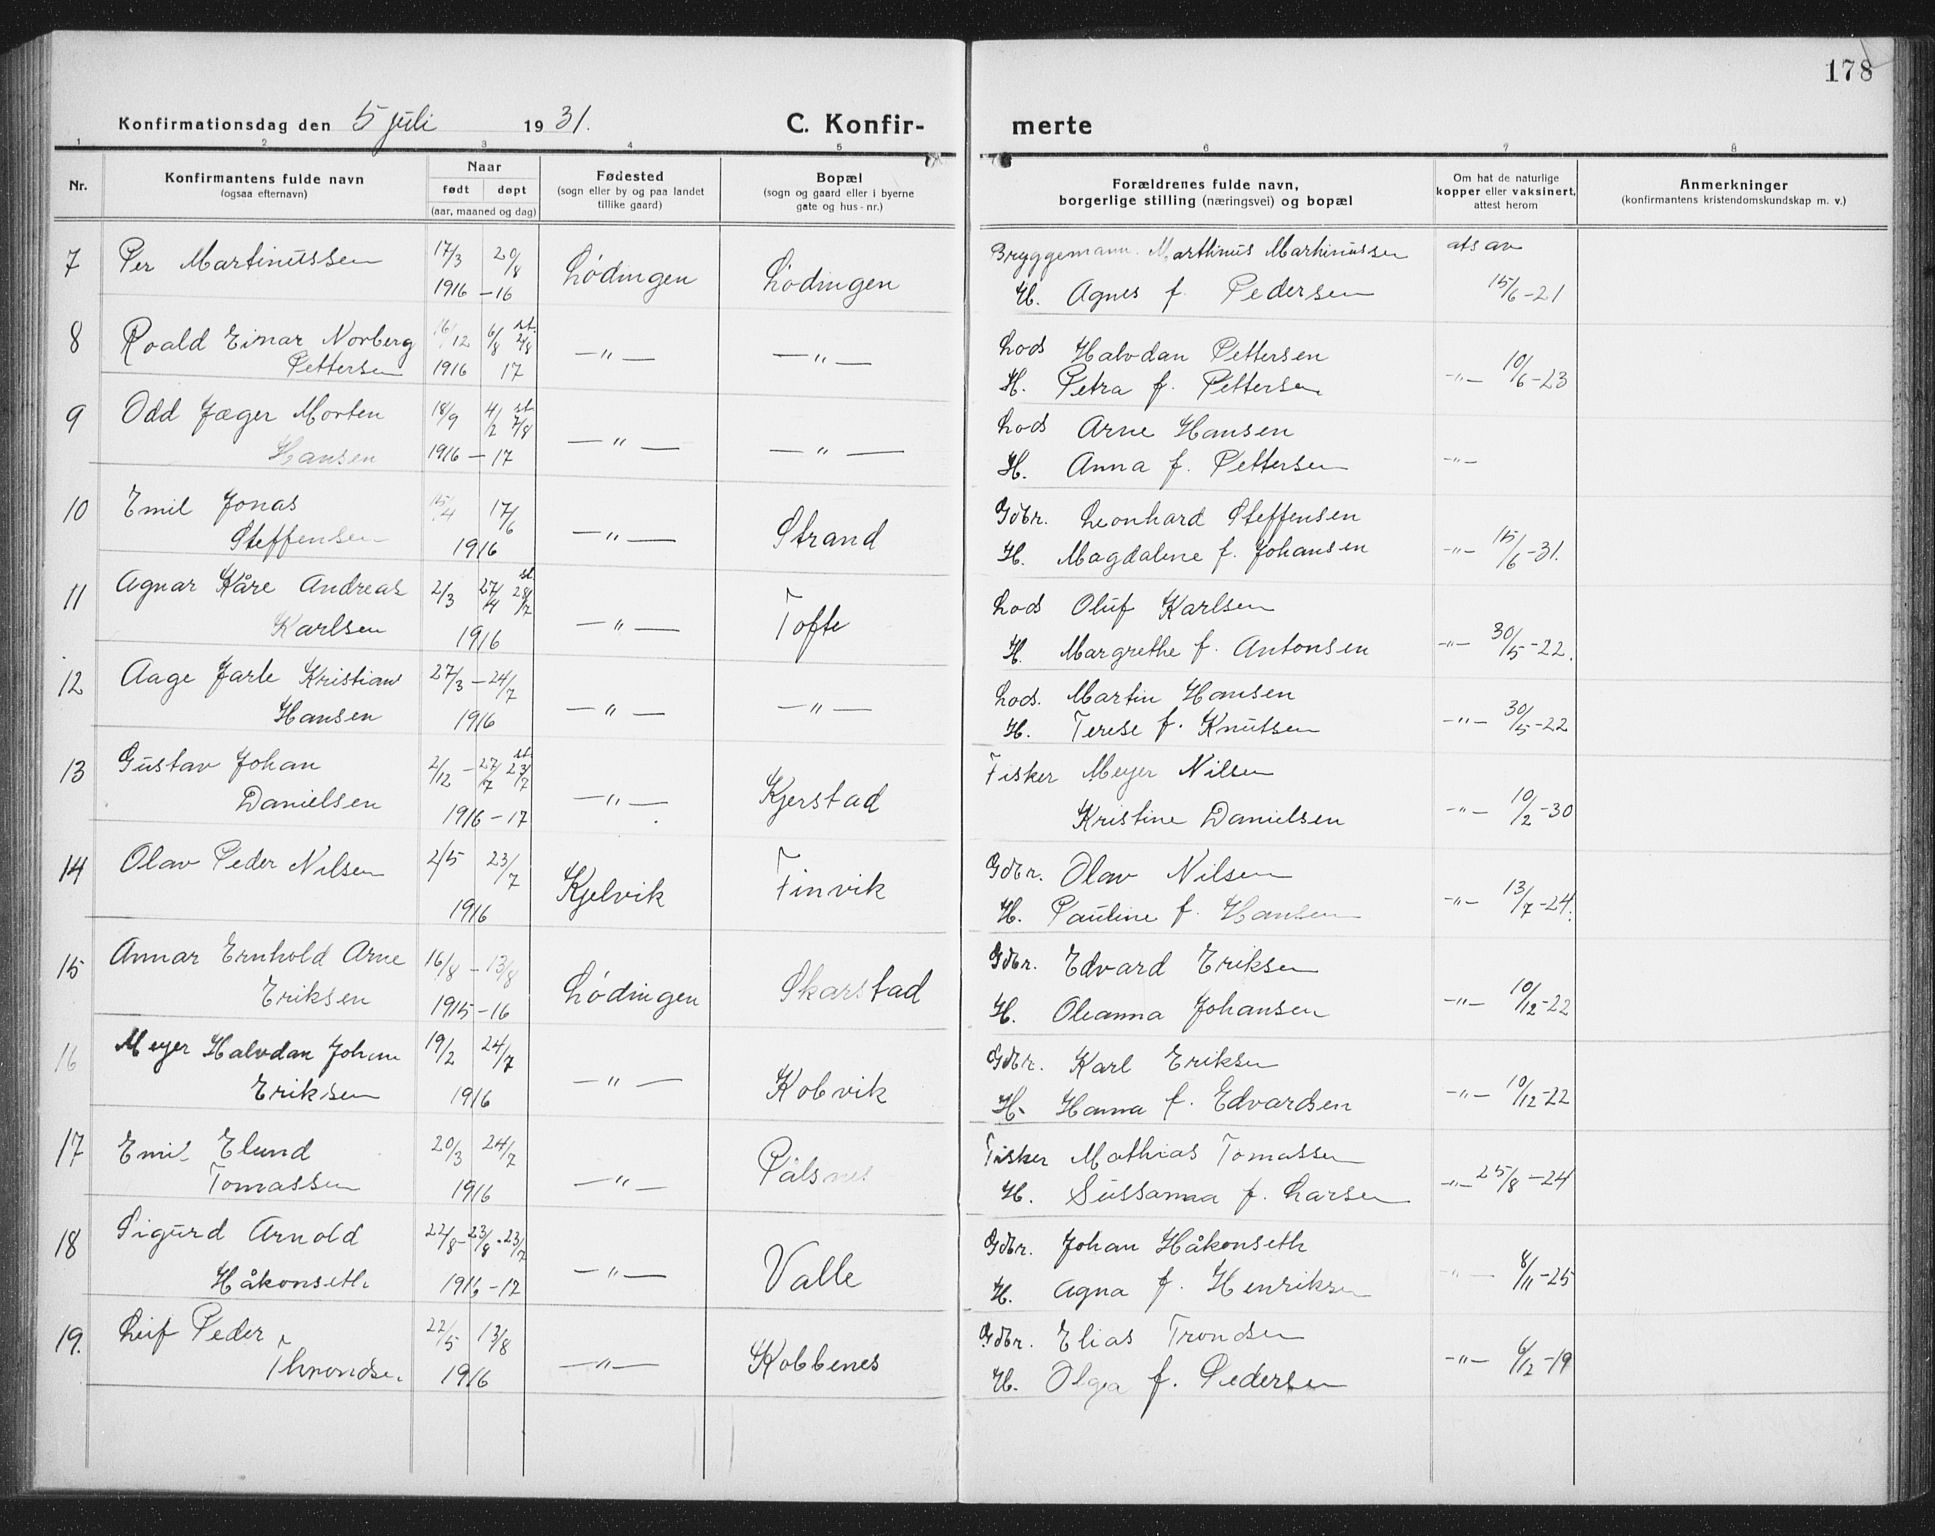 178
Konfirmationsdag den 5 juli 1931.
C. Konfir-
merte
1 2 3 4 5 6 7 8
Nr.
Konfirmantens fulde navn
(ogsaa efternavn)
Naar
født døpt
(aar, maaned og dag)
Fødested
(sogn eller by og paa landet
tillike gaard)
Bopæl
(sogn og gaard eller i byerne
gate og hus-nr.)
Forældrenes fulde navn,
borgerlige stilling (næringsvei) og bopæl
Om hat de naturlige
kopper eller vaksinert,
attest herom
Anmerkninger
(konfirmantens kristendomskundskap m. v.)
7 Per Martinussen 17/3 20/8 Lødingen Lødingen Bryggemann Marthinus Martinussen ats av
1916 - 16 H. Agnes f. Pedersen 15/6-21
8 Roald Einar Norberg 16/12 6/8 st. 2/8 —"— —"— Lods Halvdan Pettersen
Pettersen 1916 17 H. Petra f. Pettersen —"— 10/6-23
9 Odd Jæger Morten 18/9 4/2 st. 7/8 —"— —"— Lods Arne Hansen
Hansen 1916 - 17 H. Anna f. Pettersen —"—
10 Emil Jonas 15/4 17/6 —"— Strand Gdbr. Leonhard Steffensen
Steffensen 1916 H. Magdalene f. Johansen —"— 15/6-31.
11 Agnar Kåre Andreas 2/3 27/4 st. 28/7 —"— Tofte Lods Oluf Karlsen
Karlsen 1916 H. Margrethe f. Antonsen —"— 30/5-22.
12 Aage Jarle Kristian 27/3 - 24/7 —"— —"— Lods. Martin Hansen
Hansen 1916 H. Terese f. Knutsen —"— 30/5-22
13 Gustav Johan 2/12 - 27/7 st. 23/7 —"— Kjerstad Fisker Meyer Nilsen
Danielsen 1916 - 17 Kristine Danielsen —"— 10/2-30
14 Olav Peder Nilsen 2/5 23/7 Kjelvik Finvik Gdbr. Olav Nilsen
1916 H. Pauline f. Hansen —"— 13/7-24.
15 Annar Ernhold Arne 16/8 - 13/8 Lødingen Skarstad Gdbr. Edvard Eriksen
Eriksen 1915 - 16 H. Oleanna Johansen —"— 10/12-22
16 Meyer Halvdan Johan 19/2 24/7 —"— Kobvik Gdbr. Karl Eriksen
Eriksen 1916 H. Hanna f. Edvardsen —"— 10/12-22
17 Emil Elund 20/3 24/7 —"— Pålsnes Fisker Mathias Tomassen
Tomassen 1916 H. Sussanna f. Larsen —"— 25/8-24
18 Sigurd Arnold 22/8 - 23/8 - 23/7 —"— Valle Gdbr. Johan Håkonseth
Håkonseth 1916 - 17 H. Agna f. Henriksen —"— 8/11-25
19. Leif Peder 22/5 13/8 —"— Kobbenes Gdbr. Elias Trondsen
Throndsen 1916 H. Olga f. Pedersen —"— 6/12-19